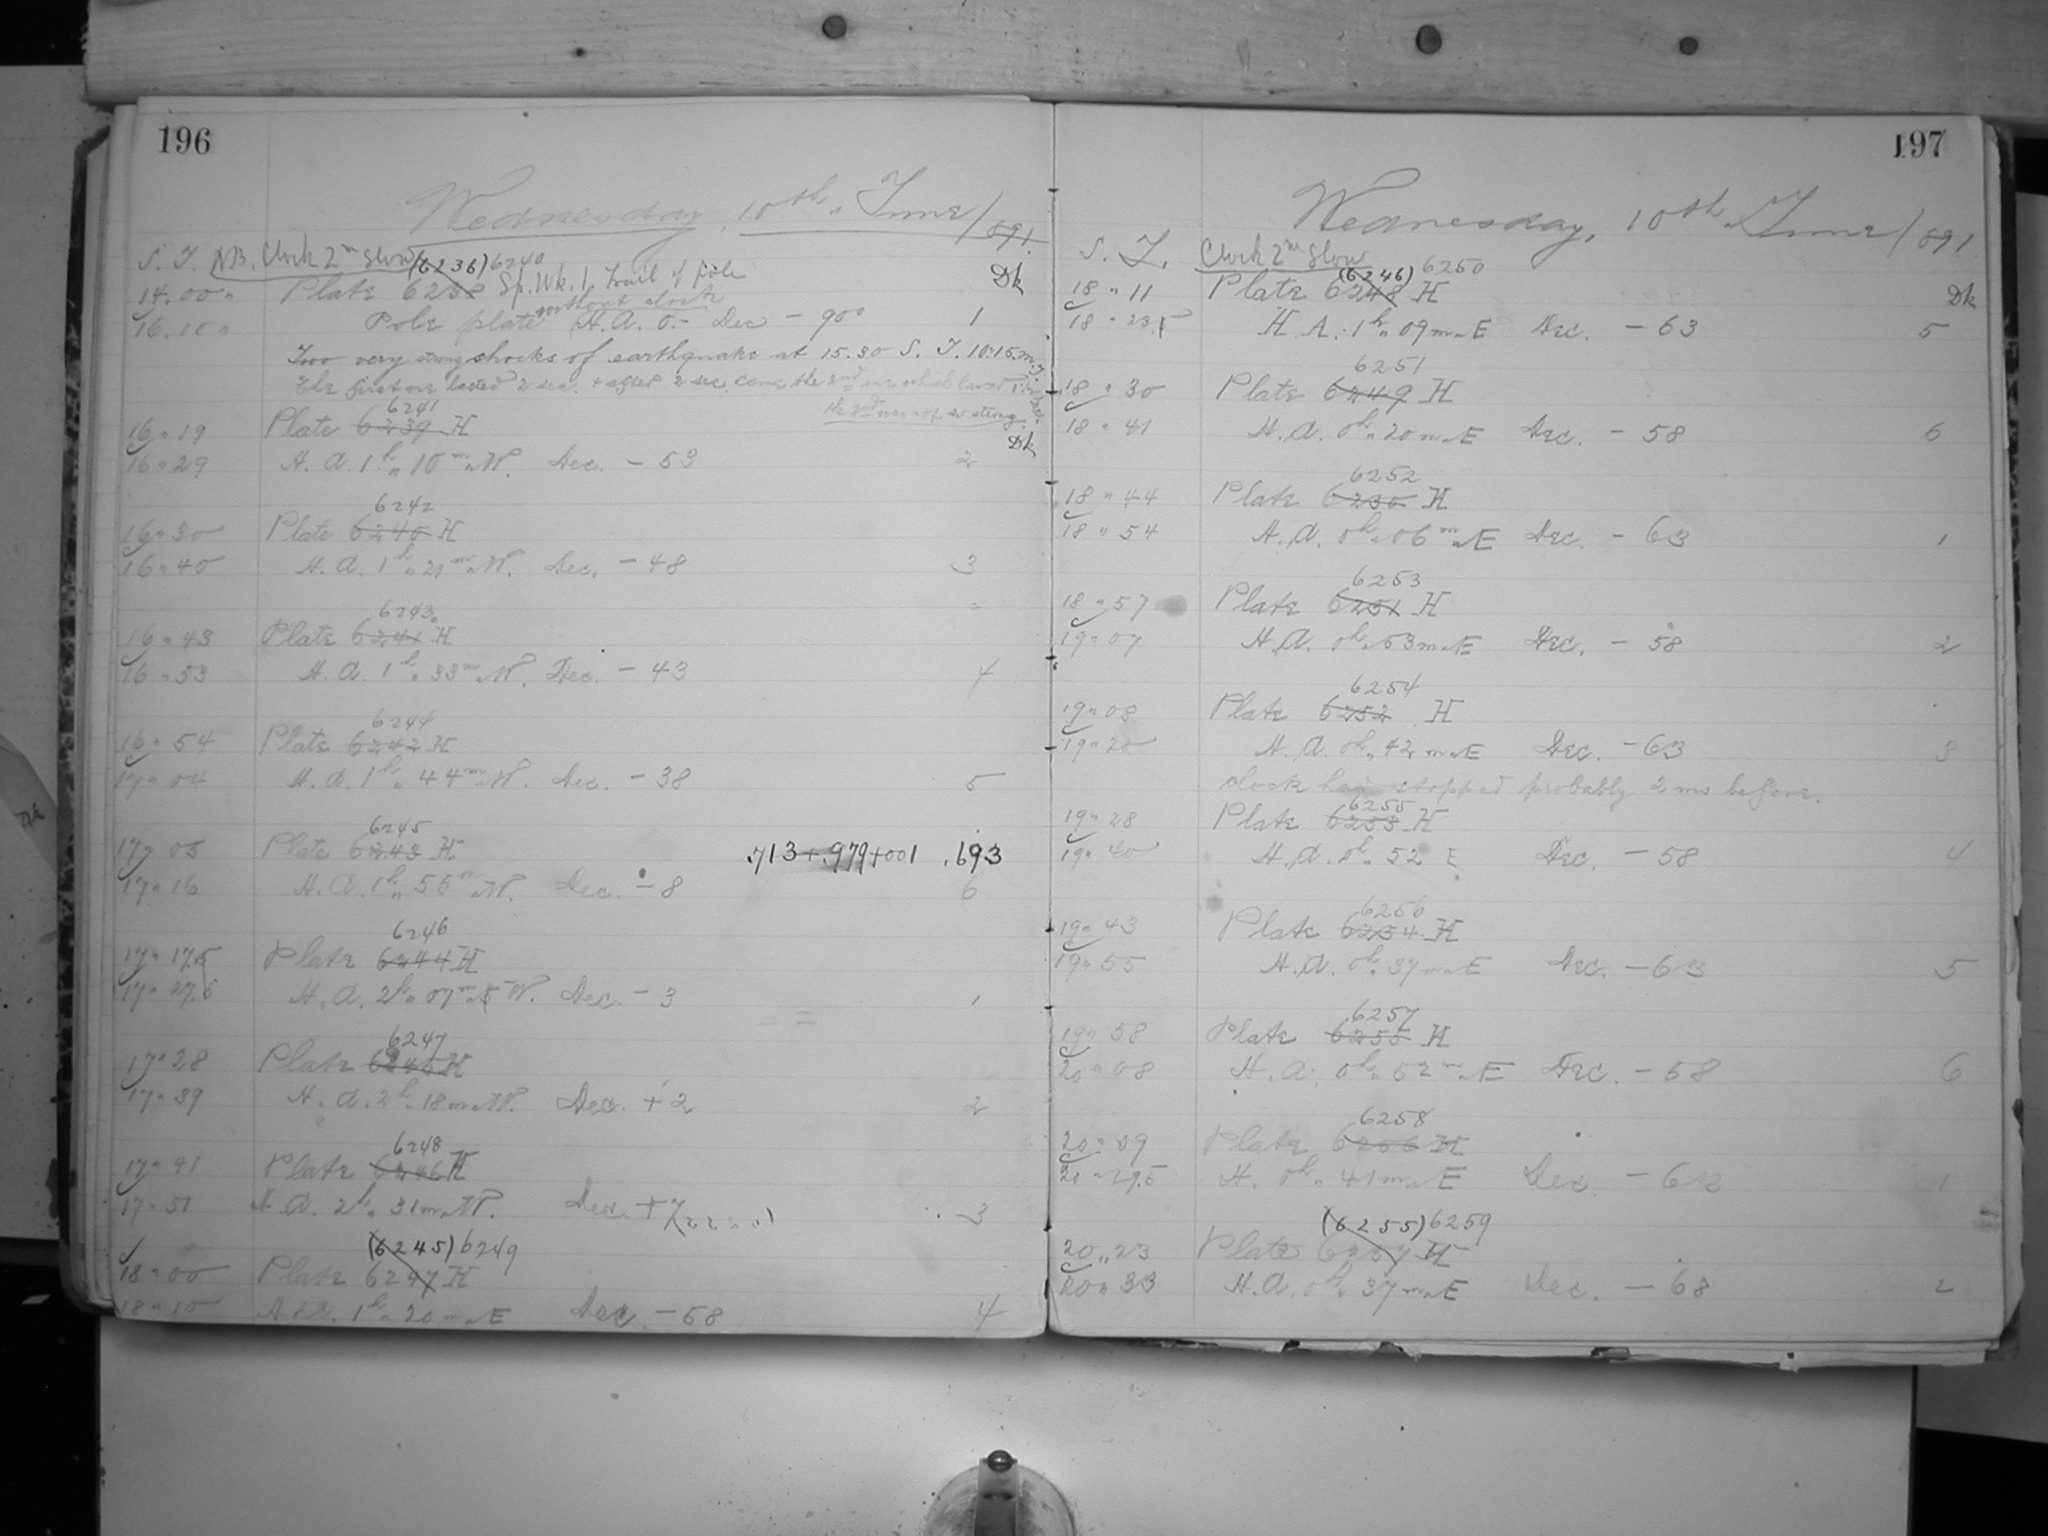 196
Wednesday, 10th June/891.
S. T. NB. Clock 2m Slow (6236) 6240
14.00 " Plate 6238 Sp. Wk. 1 Trail of Pole Dk
without clock
16.10 " Pole plate (H. A. 0 - Dec - 900 1
Two very strong shocks of earthquake at 15.30 S. T. 10.15 m.T.
The first one lasted 2 sec. & after 2 sec. came the 2nd one which lasted
the 2nd was not so strong.
6241
16 " 19 Plate 6239 H Dk
16 " 29 H. A. 1h " 10m " W. Dec. - 53 2
6242
16 " 30 Plate 6240 H
16 " 40 H. A. 1h " 21m " W. Dec. - 48 3
6243
16 " 43 Plate 6241 H
16 " 53 H. A. 1h " 33m " W. Dec. - 43 4
6244
16 " 54 Plate 6242 H
17 " 04 H. A. 1h " 44m " W. Dec. - 38 5
6245
17 " 05 Plate 6243 H .713+.979+001 .693
17 " 16 H. A. 1h " 55m " W. Dec. - 8 6
6246
17 " 17.5 Plate 6244 H
17 " 27.5 H. A. 2h " 07m " 5 W. Dec. - 3 1
6247
17 " 28 Plate 6245 H
17 " 39 H. A. 2h " 18m " W. Dec. + 2 2
6248
17 " 41 Plate 6246 H
17 " 51 H. A. 2h " 31m " W. Dec. + 7 3
(6245) 6249
18 " 00 Plate 6247 H
18 " 10 H. A. 1h " 20m " E Dec. - 68 4
197
Wednesday, 10th June/891
S. T. Clock 2m Slow (6246) 6250
18 " 11 Plate 6248 H Dk
18 " 23.5 H. A. 1h " 09m " E Dec. - 63 5
6251
18 " 30 Plate 6249 H
18 " 41 H. A. 0h " 20m " E Dec. - 58 6
6252
18 " 44 Plate 6250 H
18 " 54 H. A. 0h " 06m " E Dec. - 63 1
6253
18 " 57 Plate 6251 H
19 " 07 H. A. 0h " 53m " E Dec. - 58 2
6254
19 " 08 Plate 6252 H
19 " 20 H. A. 0h " 42m " E Dec. - 63 3
clock has stopped probably 2 ms before.
6255
19 " 28 Plate 6253 H
19 " 40 H. A. 0h " 52 E Dec. - 58 4
6256
19 " 43 Plate 6254 H
19 " 55 H. A. 0h " 37m " E Dec. - 63 5
6257
19 " 58 Plate 6255 H
20 " 08 H. A. 0h " 52m " E Dec. - 58 6
6258
20 " 09 Plate 6256 H
20 " 19.5 H. 0h " 41m " E Dec. - 63 1
(6255) 6259
20 " 23 Plate 6257 H
20 " 33 H. A. 0h " 37m " E Dec. - 68 2